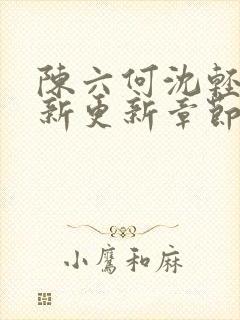 陳六何沈輕
新更新章節
小鷹和麻